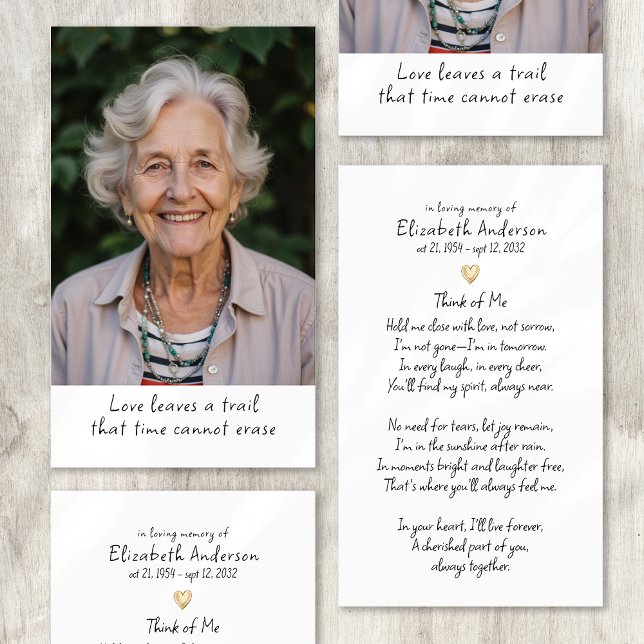 Love leaves a trail
that time cannot erase
in loving memory of
Elizabeth Anderson
oct 21, 1954 – sept 12, 2032
Think of Me
Love leaves a trail
that time cannot erase
in loving memory of
Elizabeth Anderson
oct 21, 1954 – sept 12, 2032
Think of Me
Hold me close with love, not sorrow,
I'm not gone—I'm in tomorrow.
In every laugh, in every cheer,
You'll find my spirit, always near.
No need for tears, let joy remain,
I'm in the sunshine after rain.
In moments bright and laughter free,
That's where you'll always feel me.
In your heart, I'll live forever,
A cherished part of you,
always together.